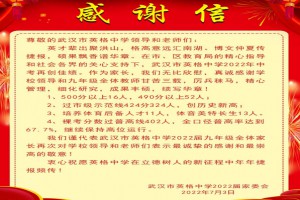 感谢信
尊敬的武汉市英格中学领导和老师们:
英才辈出聚洪山,格高意远汇南湖,博文仲夏传
捷报,硕果飘香谱华章。在市、区教育局的精心指导
和社会各界的关心支持下,武汉市英格中学2022年中
考再创佳绩,作为家长,我们无比欣慰,真诚感谢学
校领导和九年级全体教师甘若兰载,厉兵秣马,精心
管理,细化研究,成果丰硕,续写华章!
1、500分以上16人,490分以上52人。
2、过市级示范线424分324人,创历史新高。
3、培养体育后备人才11人,体音美特长生13人。
4、裸考分数过普高线402人,全口径普高率达到
67.7%,继续保持高位运行。
我们谨代表武汉市英格中学2022届九年级全体家
长再次对学校领导和老师们表示最诚挚的感谢和最崇
高的敬意!
衷心祝愿英格中学在立德树人的新征程中年年捷
报频传!
武汉市英格中学2022届家委会
2022年7月3日